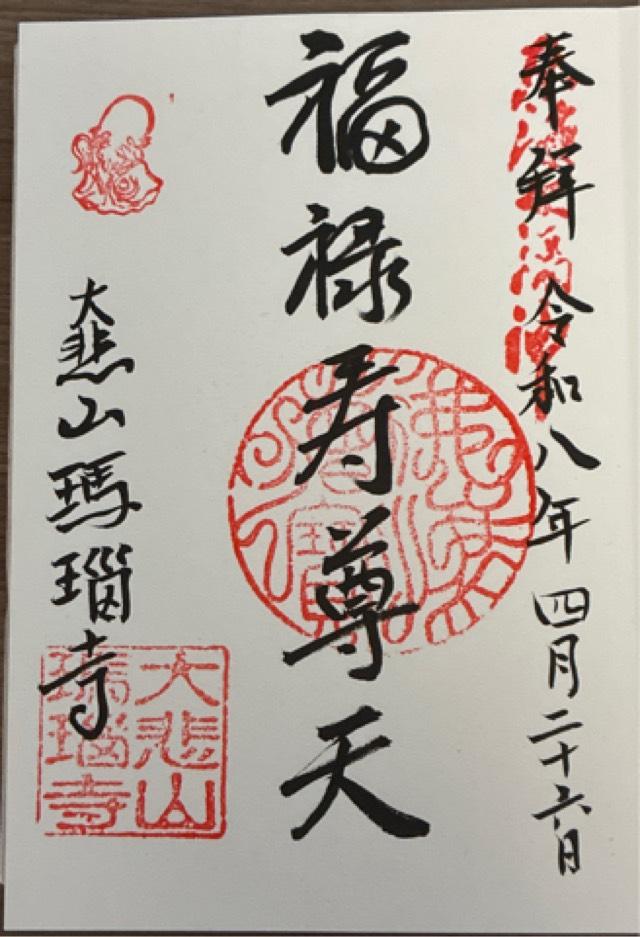 奉拜 令和八年四月二十六日
福禄寿尊天
大悲山瑪瑙寺
大悲山
瑪瑙寺